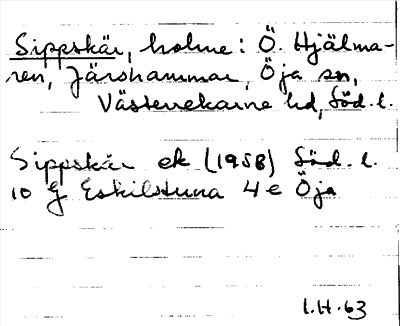 Sippskär, holme: Ö. Hjälma-
ren, Järshammar, Öja sn,
Västerrekarne hd, Söd. l.
Sippskär ek (1958) Söd. l.
10 G Eskilstuna 4 e Öja
I.H. 63